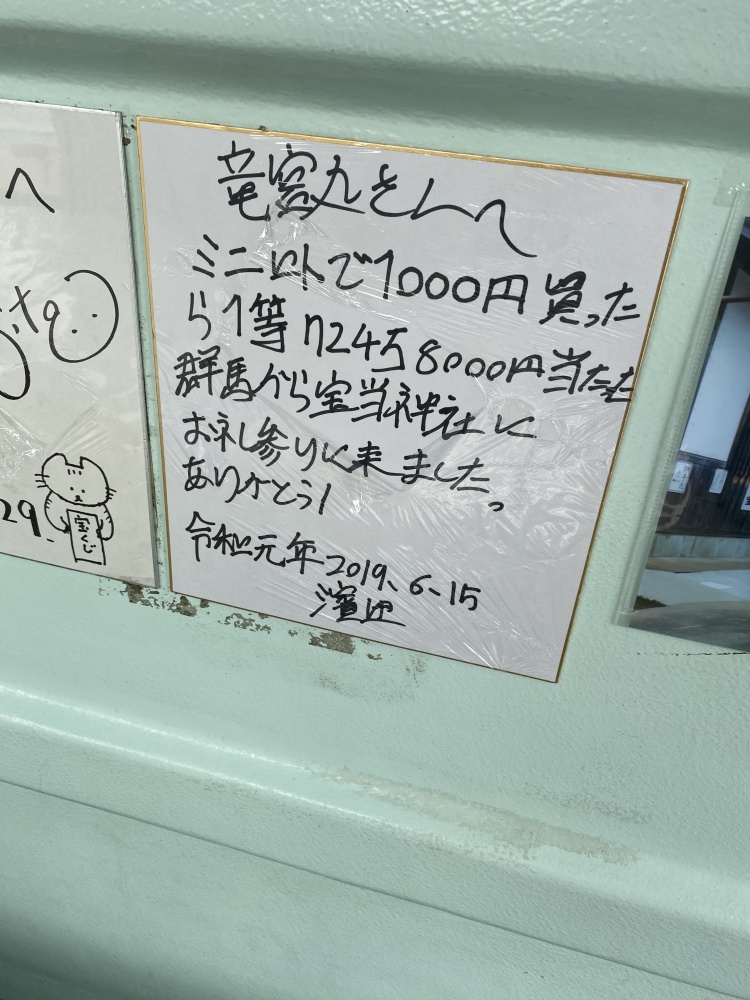 竜宮丸さんへ
ミニロトで1000円買った
ら1等1724万8000円当たた
群馬から宝当神社に
お礼参りに来ました。
ありがとう!
令和元年2019、6-15
濱辺
へ
29.
宝くじ